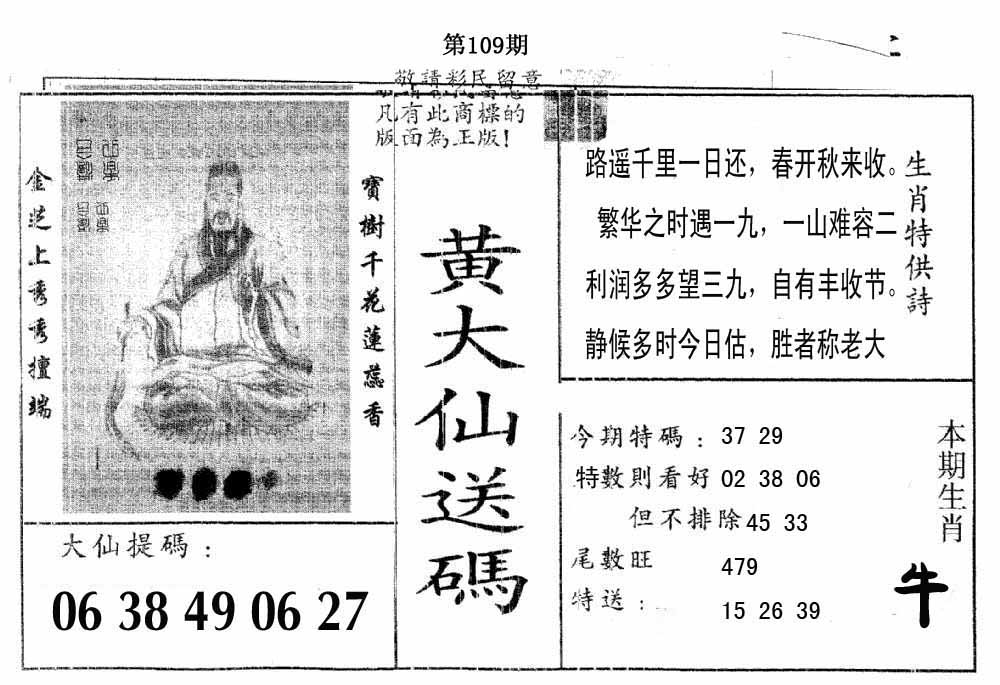 第109期
敬請彩民留意
凡有此商標的
版面為正版!
金
上秀秀擅端
寶樹千花蓮蕊香
黄大仙送碼
大仙提碼：
06 38 49 06 27
生肖特供詩
路遥千里一日还，春开秋来收。
繁华之时遇一九，一山难容二
利润多多望三九，自有丰收节。
静候多时今日估，胜者称老大
今期特碼：37 29
特數則看好 02 38 06
但不排除 45 33
尾數旺 479
特送：15 26 39
本期生肖
牛